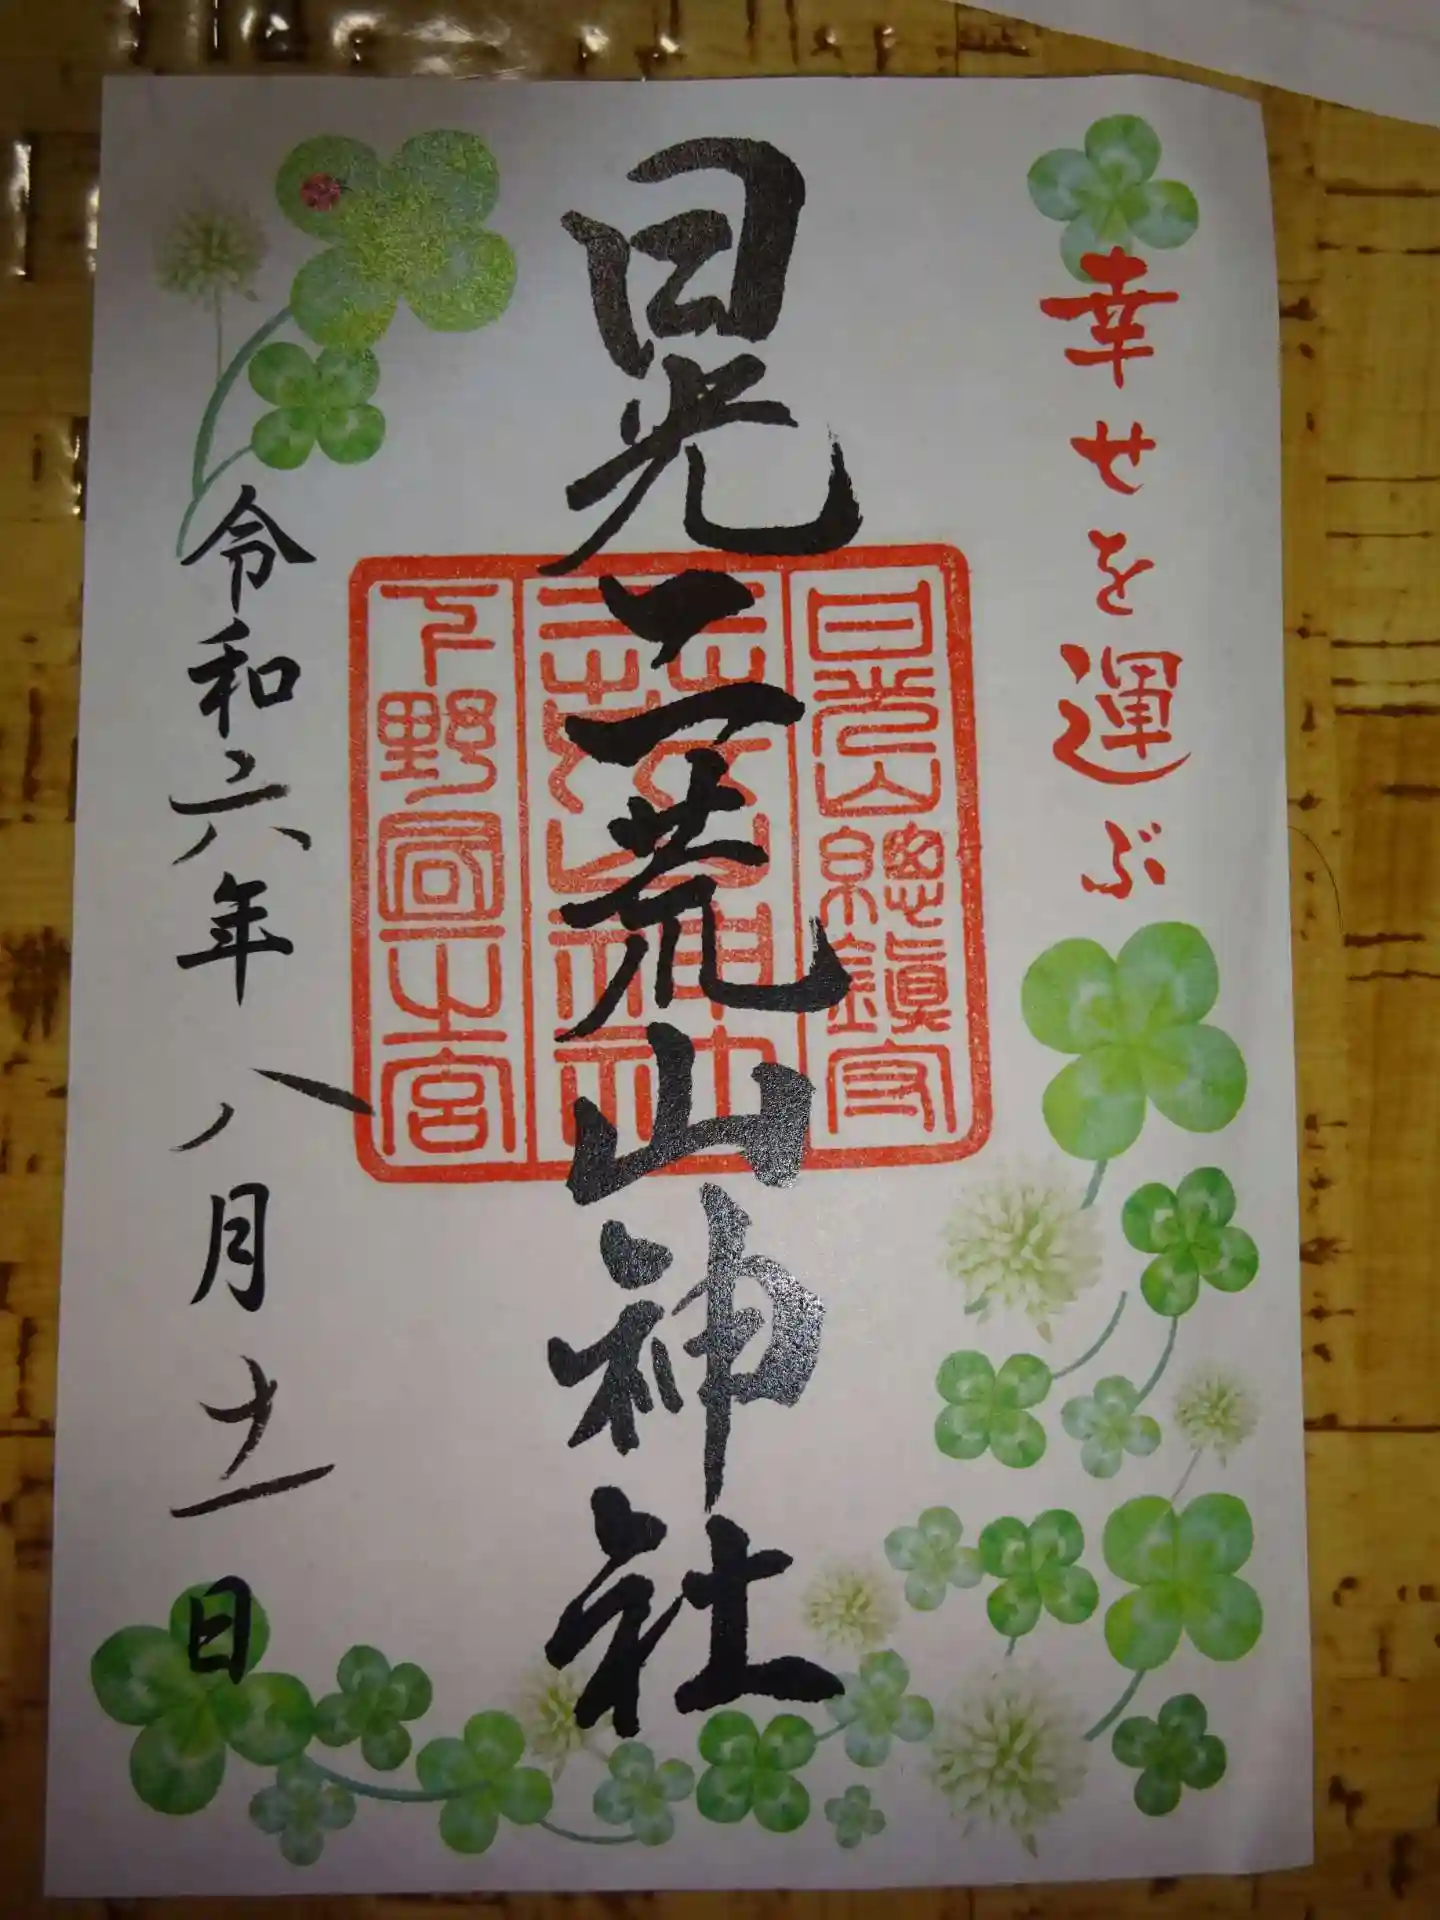 幸せを運ぶ
日光二荒山神社
日光山總鎮守
二荒山神社
下野國一之宮
令和六年八月十二日